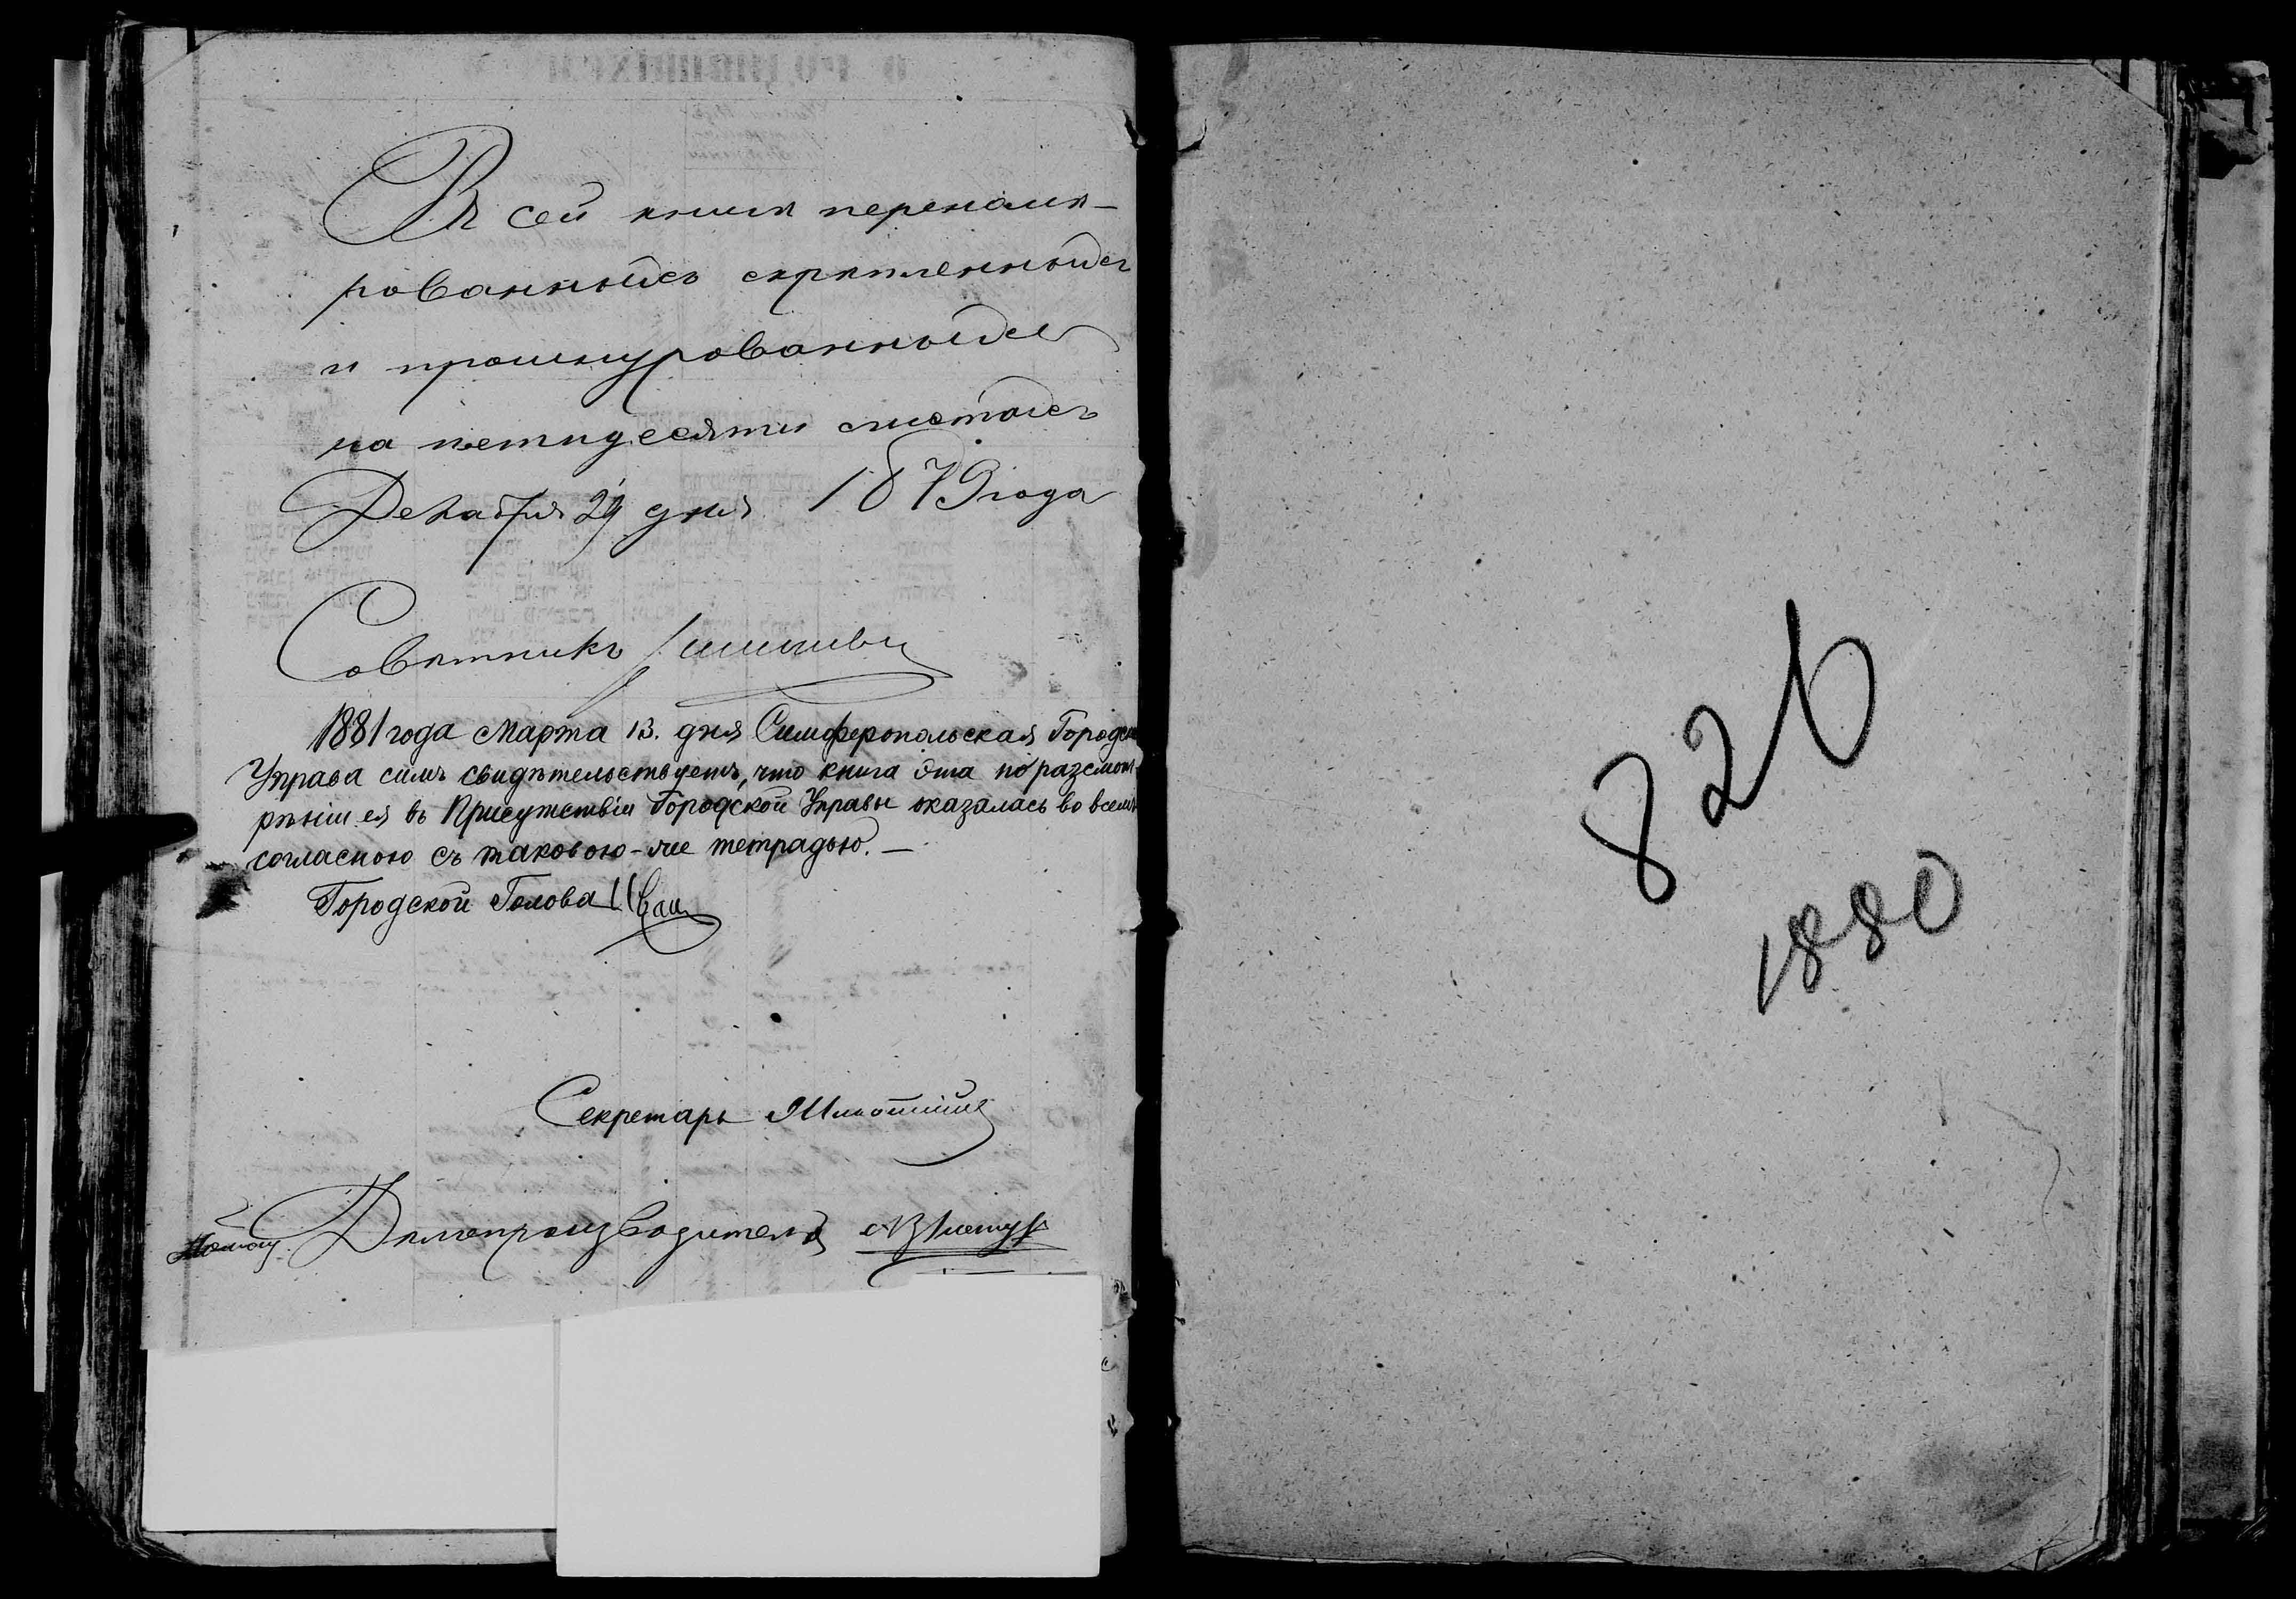 Въ сей книгѣ перенаме-
рованныхъ скрѣпленныхъ
и прошнурованныхъ
на петидесяти листахъ
Декабря 29 дня 1879 года
Совѣтникъ
1881 года Марта 13. дня Симферопольская Городск
Управа симъ свидѣтельствуетъ, что книга эта по разсмот-
рѣніи ея въ Присутствіи Городской Управы оказалась во всемъ
согласною съ таковою-же тетрадью. —
Городской Голова Иван
Секретарь
Помощ. Дѣлопроизводителя
826
1880